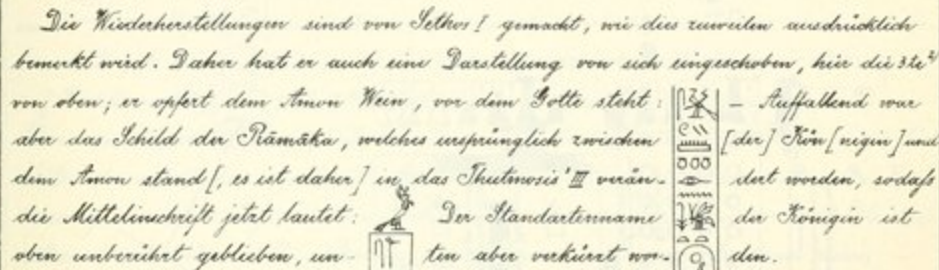 Die Wiederherstellungen sind von Sethos I gemacht, wie dies zuweilen ausdrücklich
bemerkt wird. Daher hat er auch eine Darstellung von sich eingeschoben, hier die 3te
von oben; er opfert dem Amon Wein, vor dem Gotte steht: — Auffallend war
aber das Schild der Rāmāka, welches ursprünglich zwischen [der] Kön[nigin] und
dem Amon stand[, es ist daher] in das Thutmosis' III verän- dert worden, sodaß
die Mittelinschrift jetzt lautet: Der Standartenname der Königin ist
oben unberührt geblieben, un- ten aber verkürzt wor- den.